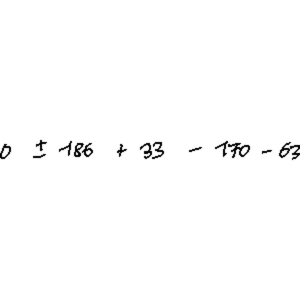 0 ± 186 + 33 - 170 - 63